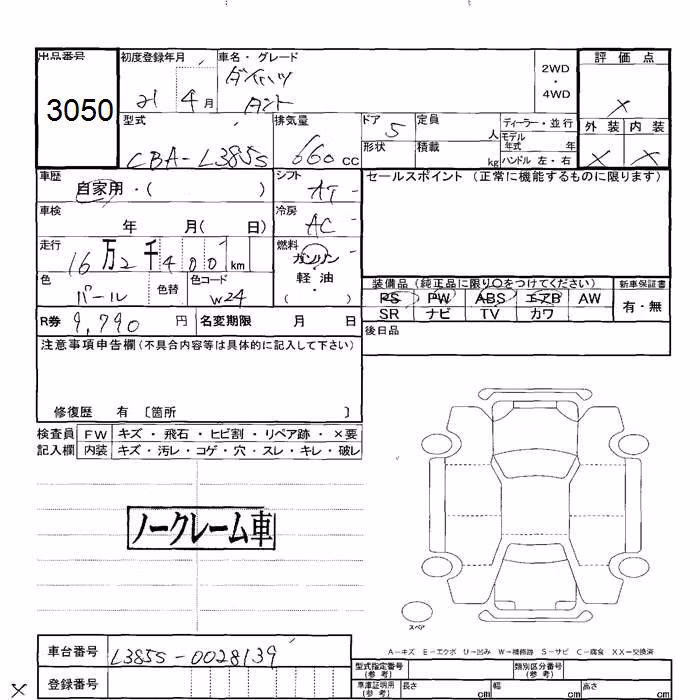 出品番号 初度登録年月 車名・グレード 評価点
3050 21 4月 ダイハツ タント 2WD・4WD ×
型式 排気量 ドア 定員 ディーラー・並行 外装 内装
CBA-L385S 660cc 5 人 モデル年式 年 × ×
形状 積載 kg ハンドル 左・右
車歴 シフト セールスポイント (正常に機能するものに限ります)
自家用・( ) AT
車検 年 月( 日) 冷房 AC
走行 16万2千400km 燃料 ガソリン
軽油
( )
色 パール 色替 色コード W24
装備品 (純正品に限り○をつけてください) 新車保証書
PS PW ABS エアB AW 有・無
SR ナビ TV カワ
R券 9,790円 名変期限 月 日 後日品
注意事項申告欄(不具合内容等は具体的に記入して下さい)
修復歴 有 〔箇所 〕
検査員 FW キズ・飛石・ヒビ割・リペア跡・×要
記入欄 内装 キズ・汚レ・コゲ・穴・スレ・キレ・破レ
ノークレーム車
スペア
A-キズ E-エクボ U-凹み W-補修跡 S-サビ C-腐食 XX-交換済
車台番号 L385S-0028139
型式指定番号(参考) 類別区分番号(参考)
× 登録番号
車庫証明用(参考) 長さ cm 幅 cm 高さ cm